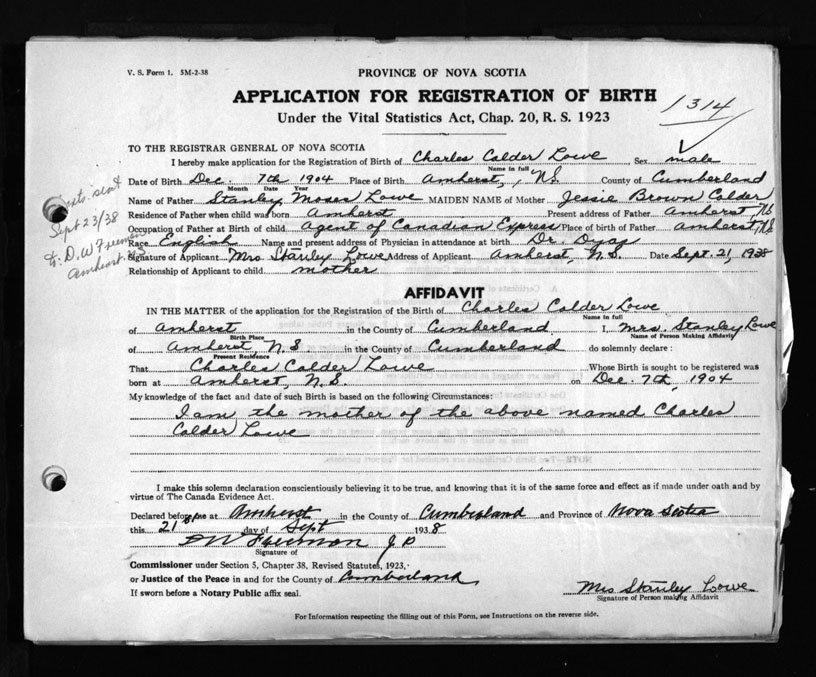 V. S. Form 1. 5M-2-38
PROVINCE OF NOVA SCOTIA
APPLICATION FOR REGISTRATION OF BIRTH
1314
Under the Vital Statistics Act, Chap. 20, R. S. 1923
TO THE REGISTRAR GENERAL OF NOVA SCOTIA
I hereby make application for the Registration of Birth of Charles Calder Lowe Sex male
Name in full
Date of Birth Dec. 7th 1904 Place of Birth Amherst, N.S. County of Cumberland
Month Date Year
Name of Father Stanley Moses Lowe MAIDEN NAME of Mother Jessie Brown Calder
Residence of Father when child was born Amherst Present address of Father Amherst, N.S.
Occupation of Father at Birth of child Agent of Canadian Express Place of birth of Father Amherst, N.S.
Race English Name and present address of Physician in attendance at birth Dr.
Signature of Applicant Mrs Stanley Lowe Address of Applicant Amherst, N.S. Date Sept. 21, 1938
Relationship of Applicant to child mother
Sept 23/38
D. W. Freeman
Amherst NS
AFFIDAVIT
IN THE MATTER of the application for the Registration of the Birth of Charles Calder Lowe
Name in full
of Amherst in the County of Cumberland I, Mrs. Stanley Lowe
Birth Place Name of Person Making Affidavit
of Amherst, N.S. in the County of Cumberland do solemnly declare:
Present Residence
That Charles Calder Lowe Whose Birth is sought to be registered was
born at Amherst, N.S. on Dec. 7th, 1904
My knowledge of the fact and date of such Birth is based on the following Circumstances:
I am the mother of the above named Charles
Calder Lowe
I make this solemn declaration conscientiously believing it to be true, and knowing that it is of the same force and effect as if made under oath and by
virtue of The Canada Evidence Act.
Declared before me at Amherst in the County of Cumberland and Province of Nova Scotia
this 21st day of Sept 1938
D W Freeman J P
Signature of
Commissioner under Section 5, Chapter 38, Revised Statutes, 1923,
or Justice of the Peace in and for the County of Cumberland
If sworn before a Notary Public affix seal.
Mrs Stanley Lowe
Signature of Person making Affidavit
For Information respecting the filling out of this Form, see Instructions on the reverse side.